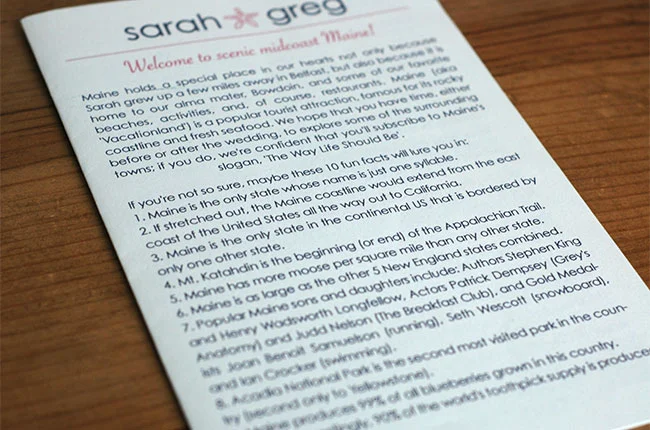 sarah greg
Welcome to scenic midcoast Maine!
Maine holds a special place in our hearts not only because
Sarah grew up a few miles away in Belfast, but also because it is
home to our alma mater, Bowdoin, and some of our favorite
beaches, activities, and, of course, restaurants. Maine (aka
'Vacationland') is a popular tourist attraction, famous for its rocky
coastline and fresh seafood. We hope that you have time, either
before or after the wedding, to explore some of the surrounding
towns; if you do, we're confident that you'll subscribe to Maine's
slogan, 'The Way Life Should Be'.
If you're not so sure, maybe these 10 fun facts will lure you in:
1. Maine is the only state whose name is just one syllable.
2. If stretched out, the Maine coastline would extend from the east
coast of the United States all the way out to California.
3. Maine is the only state in the continental US that is bordered by
only one other state.
4. Mt. Katahdin is the beginning (or end) of the Appalachian Trail.
5. Maine has more moose per square mile than any other state.
6. Maine is as large as the other 5 New England states combined.
7. Popular Maine sons and daughters include: Authors Stephen King
and Henry Wadsworth Longfellow, Actors Patrick Dempsey (Grey's
Anatomy) and Judd Nelson (The Breakfast Club), and Gold Medal-
ists Joan Benoit Samuelson (running), Seth Wescott (snowboard),
and Ian Crocker (swimming).
8. Acadia National Park is the second most visited park in the coun-
try (second only to Yellowstone).
Maine produces 99% of all blueberries grown in this country.
90% of the world's toothpick supply is produced